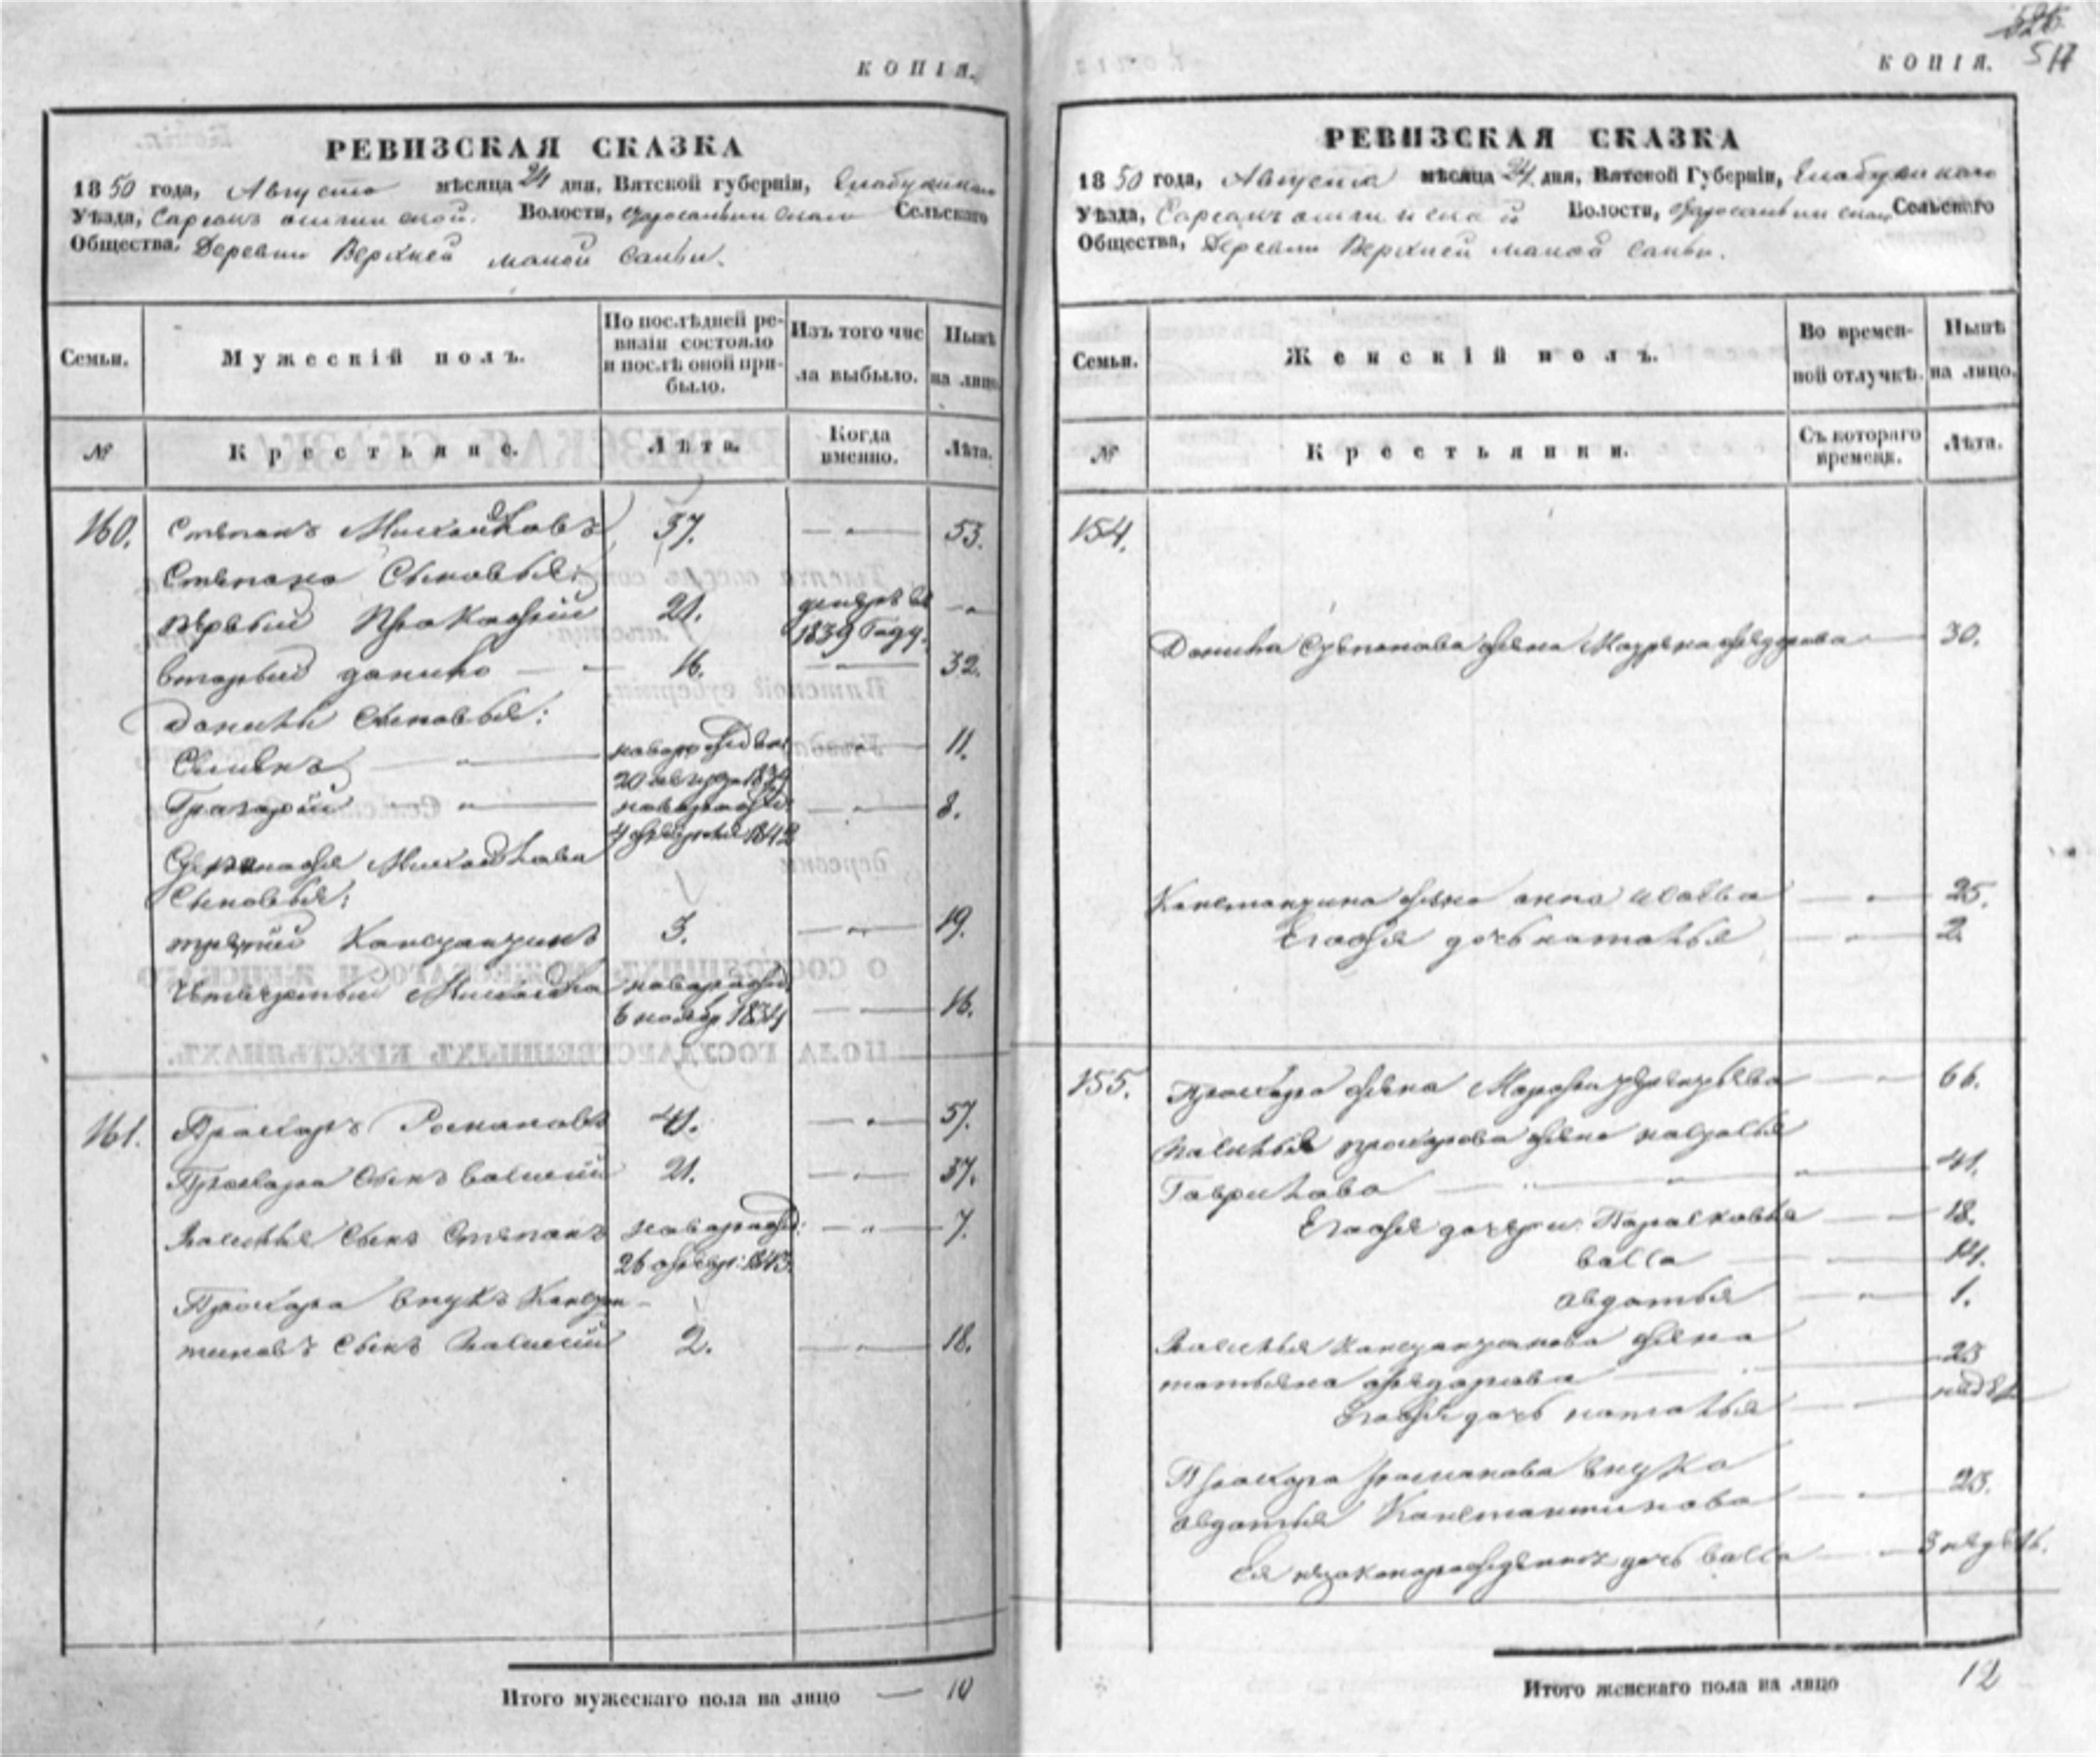 КОПІЯ.
РЕВИЗСКАЯ СКАЗКА
1850 года, Августа мѣсяца 24 дня, Вятской губерніи, Елабужскаго
Уѣзда, Волости, Сельскаго
Общества, Деревни Верхней малой Сальи.
Семьи.
Мужескій полъ.
По послѣдней ре-
визіи состояло
и послѣ оной при-
было.
Изъ того чис
ла выбыло.
Нынѣ
на лицо
№
Крестьяне.
Лѣта.
Когда
именно.
Лѣта.
160. Степанъ Михайловъ 37. — " — 53.
Степана Сыновья:
первый Прокофій 21. 1839 году. — "
вторый данило — — 16. — 32.
Данилы Сыновья:
Семенъ — " — новорожден — " — 11.
20 1839
Григорій — " — новорожд: — " — 8.
4 февраля 1842
Михайлова
Сыновья:
третий Констянтинъ 3. — " — 19.
Четвертый Михайло новорожд.
6 ноябр 1834 — " — 16.
161. Прохоръ Романовъ 41. — " — 57.
Прохора Сынъ Василий 21. — " — 37.
Василья Сынъ Степанъ новорожд: — " — 7.
26 февр: 1843.
Прохора внукъ Констян-
тиновъ Сынъ Василий 2. — " — 18.
Итого мужескаго пола на лицо — 10
КОПІЯ.
РЕВИЗСКАЯ СКАЗКА
1850 года, Августа мѣсяца 24 дня, Вятской Губерніи, Елабужскаго
Уѣзда, Волости, Сельскаго
Общества, Деревни Верхней малой Сальи.
Семьи.
Женскій полъ.
Во времен-
ной отлучкѣ.
Нынѣ
на лицо.
№
Крестьянки.
Съ котораго
времени.
Лѣта.
154.
Данила Степанова жена Матрена Федорова — 30.
Константина жена анна — " — 25.
Егожа дочь наталья — " — 2.
155. Прохора жена Марфа — " — 66.
Василья прохорова жена наталья
Гаврилова — " — 41.
Егожа дочери: Парасковья — — 18.
васса — — 14.
авдотья — " — 1.
Василья Констянтинова жена
татьяна федорова — 23
Егожа дочь наталья — — недель
Прохора романова внука
авдотья Константинова — " — 23.
Ея незаконорожденная дочь васса — — 3 недель.
Итого женскаго пола на лицо 12